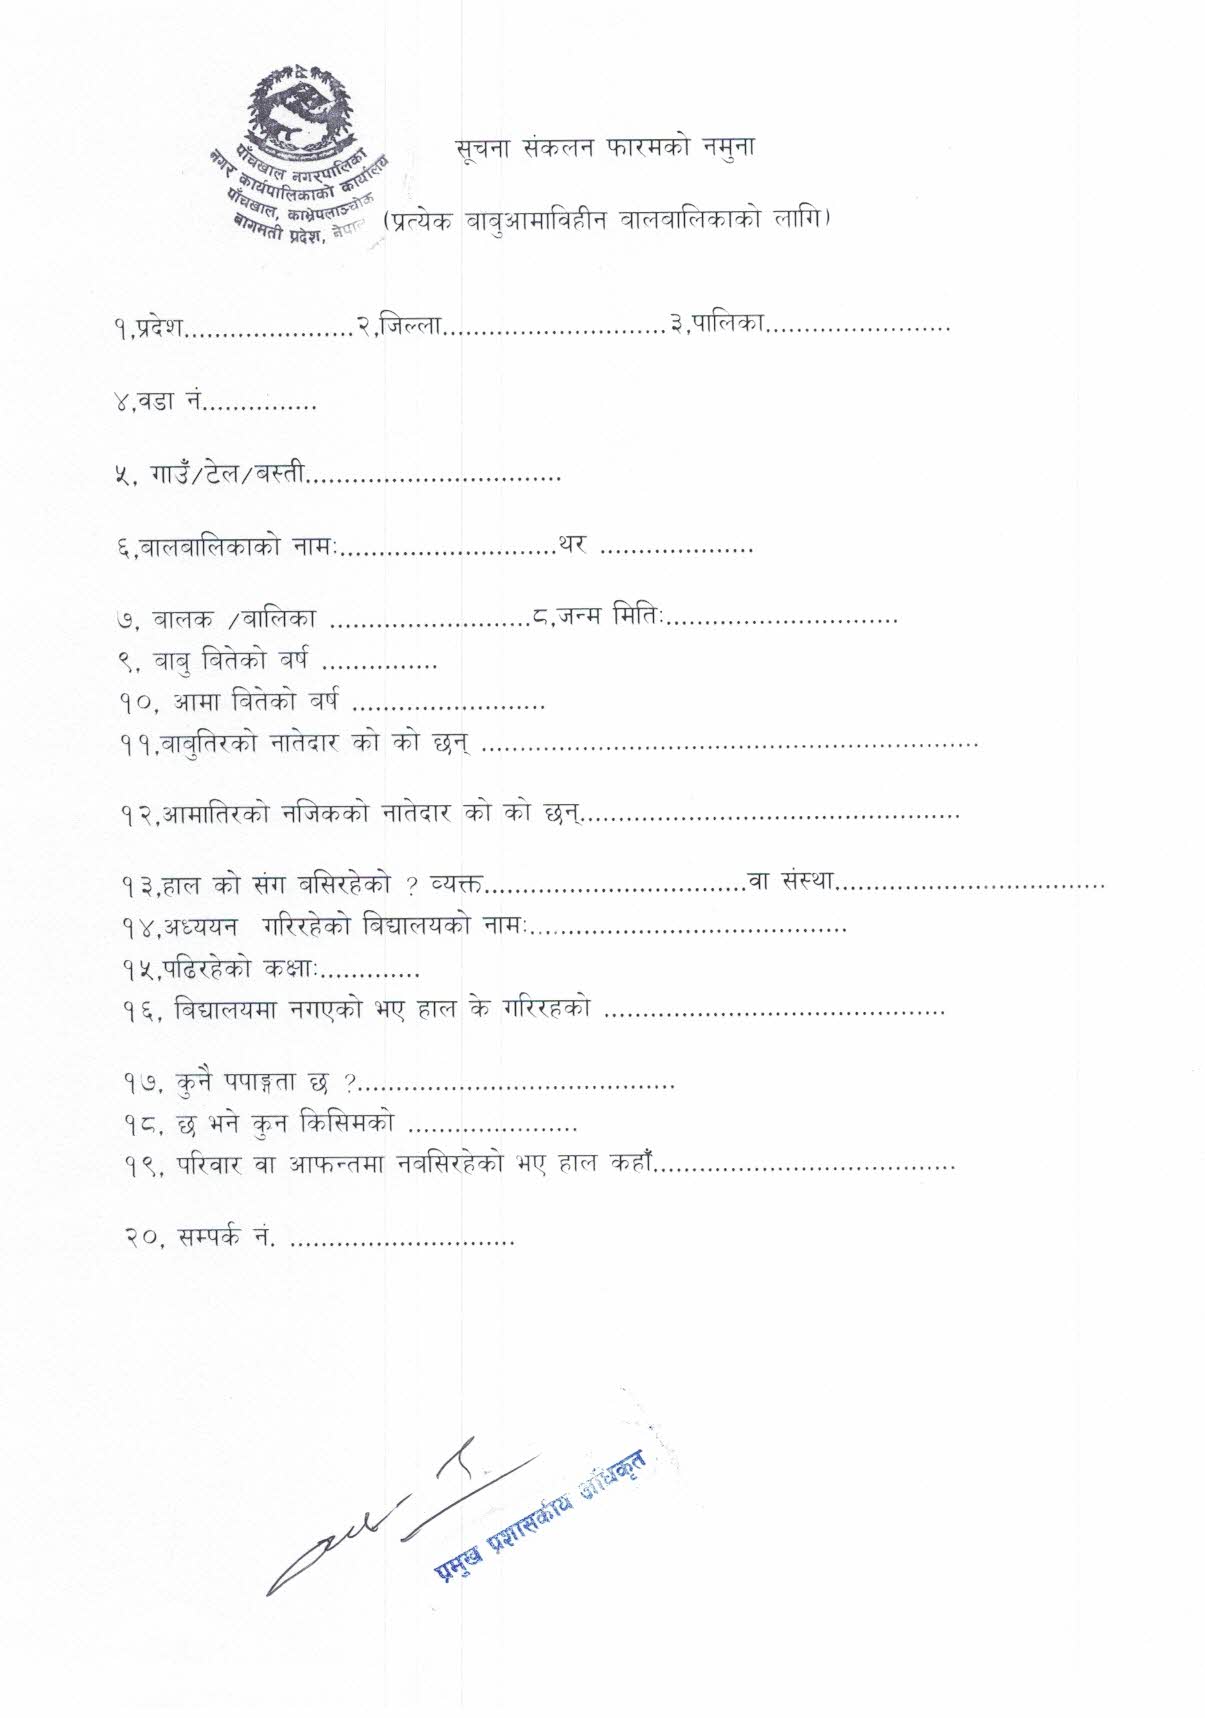 पाँचखाल नगरपालिका
नगर कार्यपालिकाको कार्यालय
पाँचखाल, काभ्रेपलाञ्चोक
बागमती प्रदेश, नेपाल
सूचना संकलन फारमको नमुना
(प्रत्येक बाबुआमाविहीन बालबालिकाको लागि)
१,प्रदेश......................२,जिल्ला.............................३,पालिका........................
४,वडा नं...............
५, गाउँ/टेल/बस्ती.................................
६,बालबालिकाको नामः............................थर ....................
७, बालक /बालिका ..........................८,जन्म मितिः..............................
९, बाबु बितेको बर्ष ...............
१०, आमा बितेको बर्ष .........................
११,बाबुतिरको नातेदार को को छन् ................................................................
१२,आमातिरको नजिकको नातेदार को को छन्.................................................
१३,हाल को संग बसिरहेको ? व्यक्त..................................वा संस्था...................................
१४,अध्ययन गरिरहेको बिद्यालयको नामः.........................................
१५,पढिरहेको कक्षाः.............
१६, बिद्यालयमा नगएको भए हाल के गरिरहको ............................................
१७, कुनै पपाङ्गता छ ?.........................................
१८, छ भने कुन किसिमको ......................
१९, परिवार वा आफन्तमा नबसिरहेको भए हाल कहाँ.......................................
२०, सम्पर्क नं. .............................
प्रमुख प्रशासकीय अधिकृत